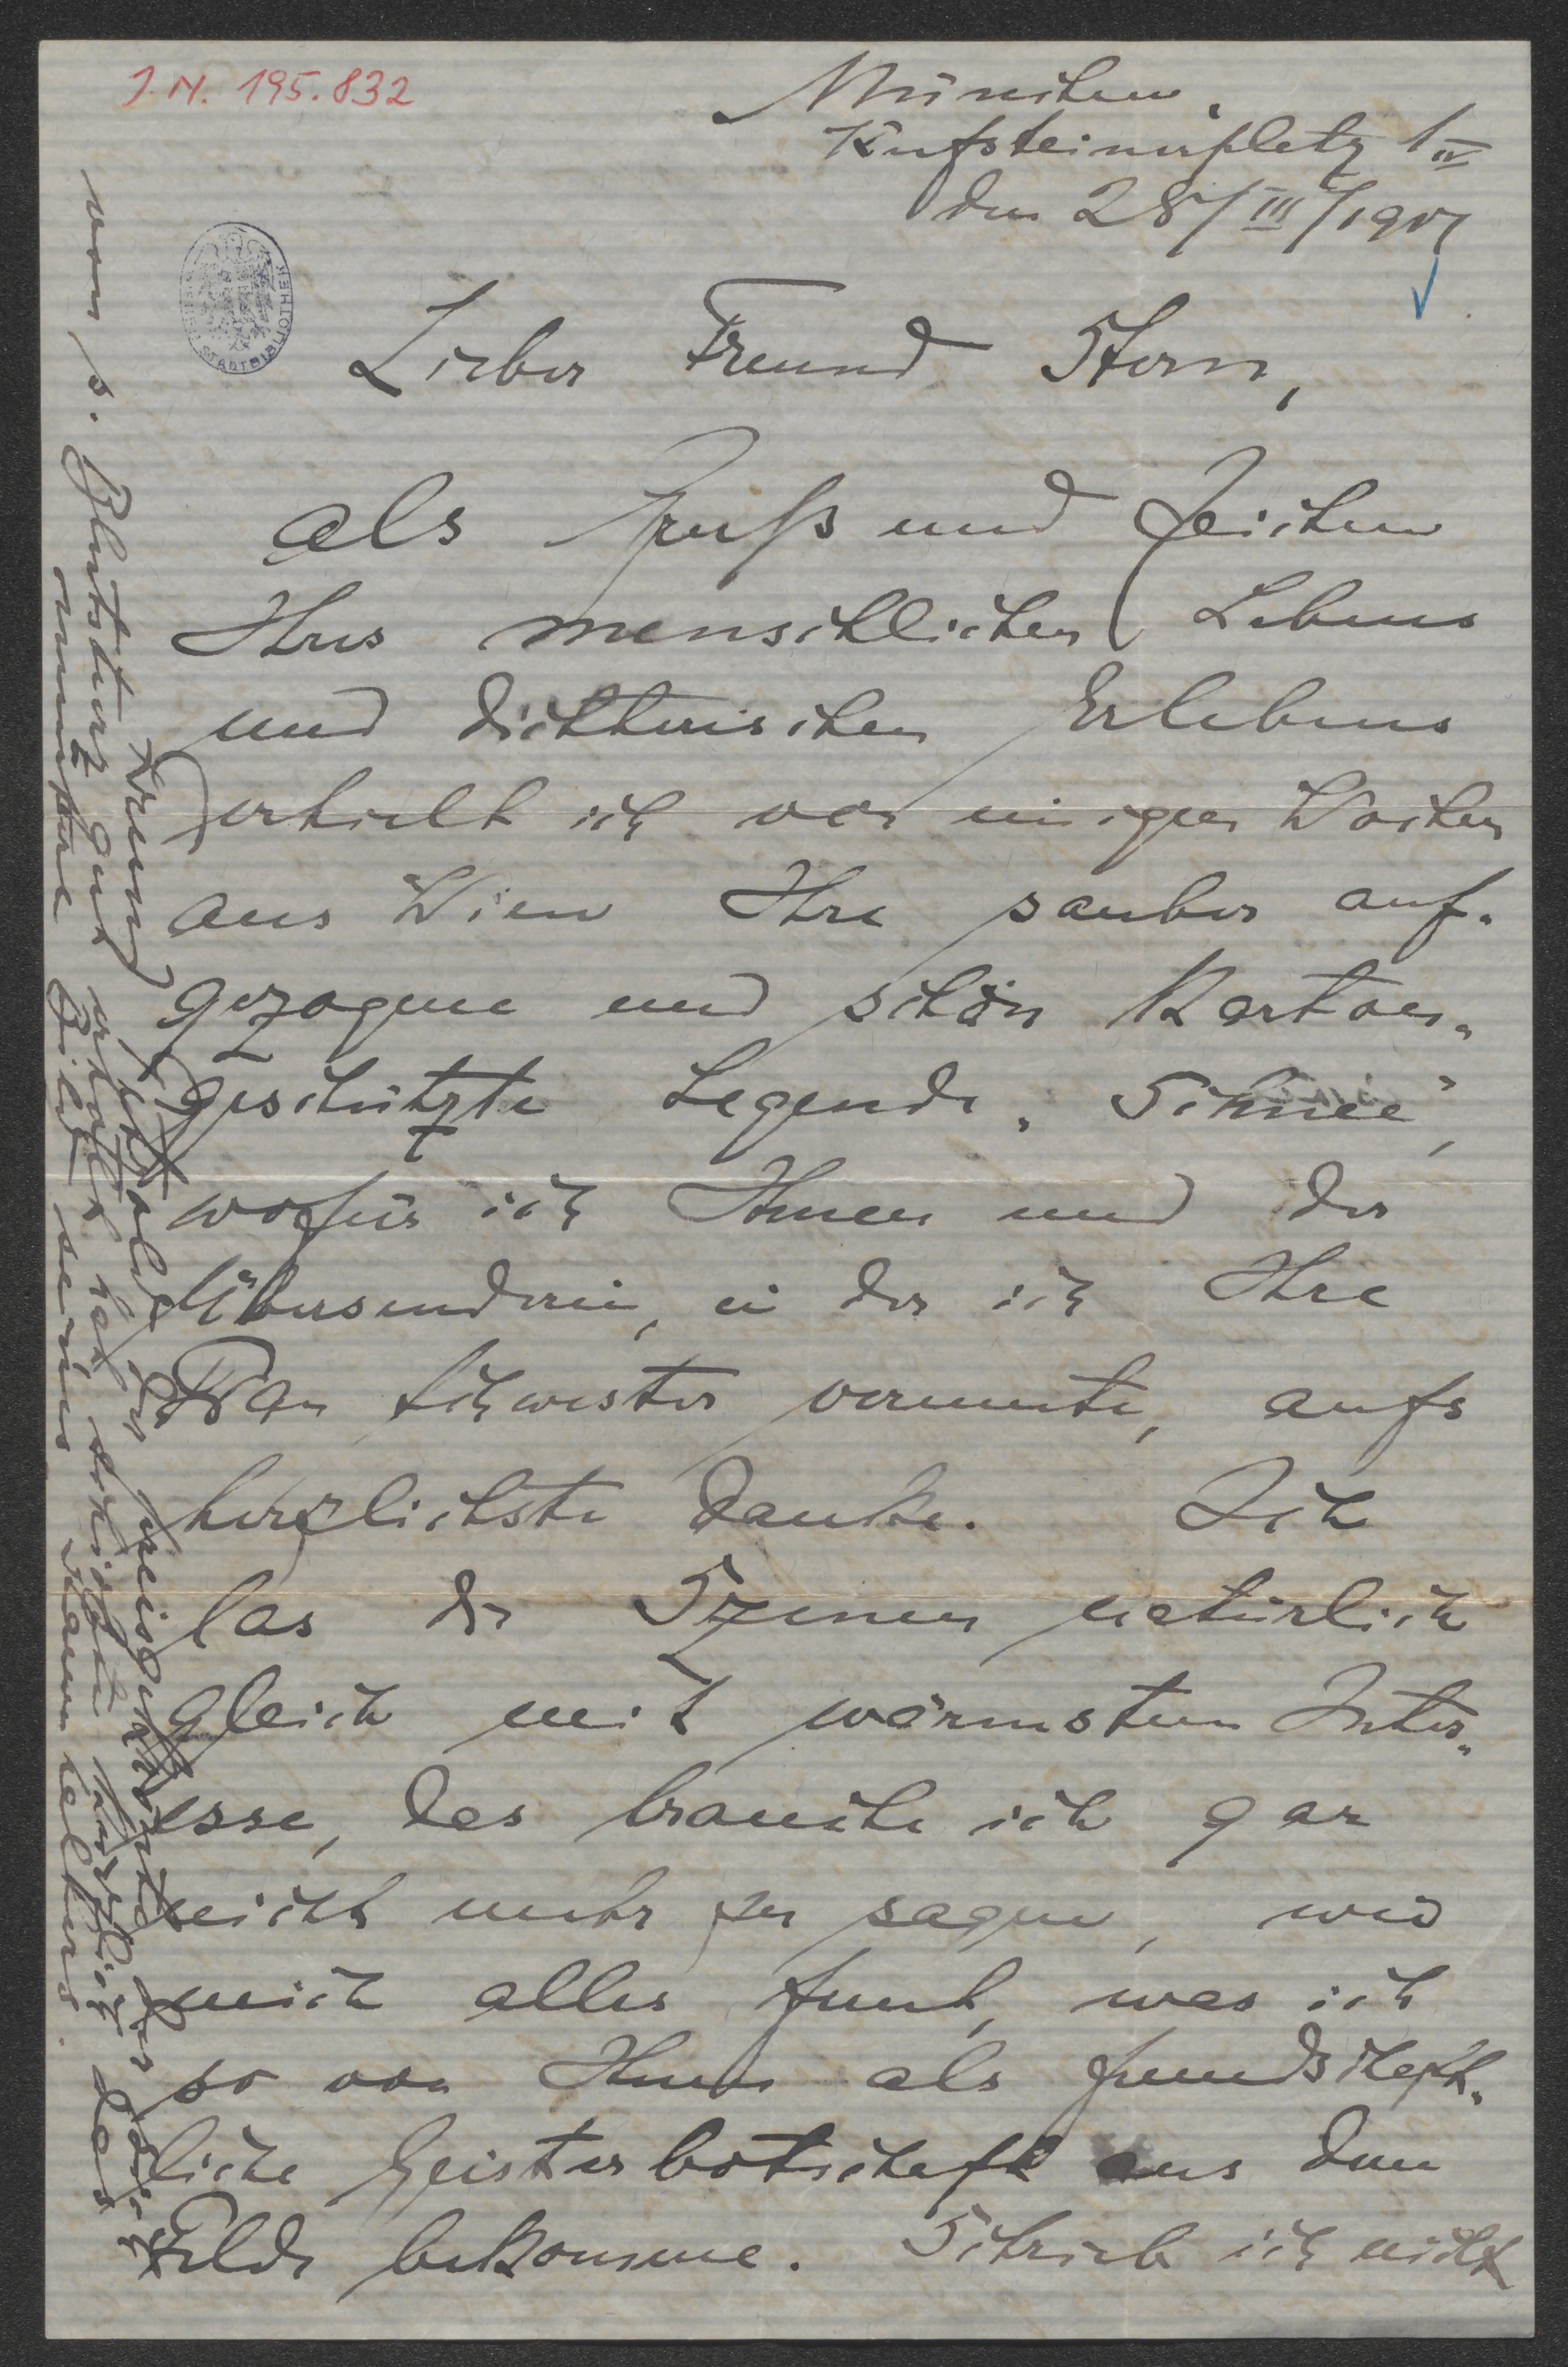 J.N. 195.832
München,
Kufsteinerplatz 1 IV
den 28/III/1917
STADTBIBLIOTHEK
Lieber Freund Stern,
als Gruß und Zeichen
Ihres menschlichen Lebens
und dichterischen Erlebens
erhielt ich vor einigen Wochen
aus Wien Ihre sauber auf-
gezogene und schön Karton-
geschützte Legende „Schnee“,
wofür ich Ihnen und der
Übersenderin, in der ich Ihre
Frau Schwester vermute, aufs
herzlichste danke. Ich
las die Szenen natürlich
gleich mit wärmstem Inter-
esse, das brauche ich gar
nicht mehr zu sagen, weil
mich alles freut, was ich
so von Ihnen als freundschaft-
liche Geisterbotschaft aus dem
Felde bekomme. Schrieb ich nicht
Krung, sobald der
der sich
von s. Blutsturz gut erholt hat,
herzlich das
muntere Bild seines